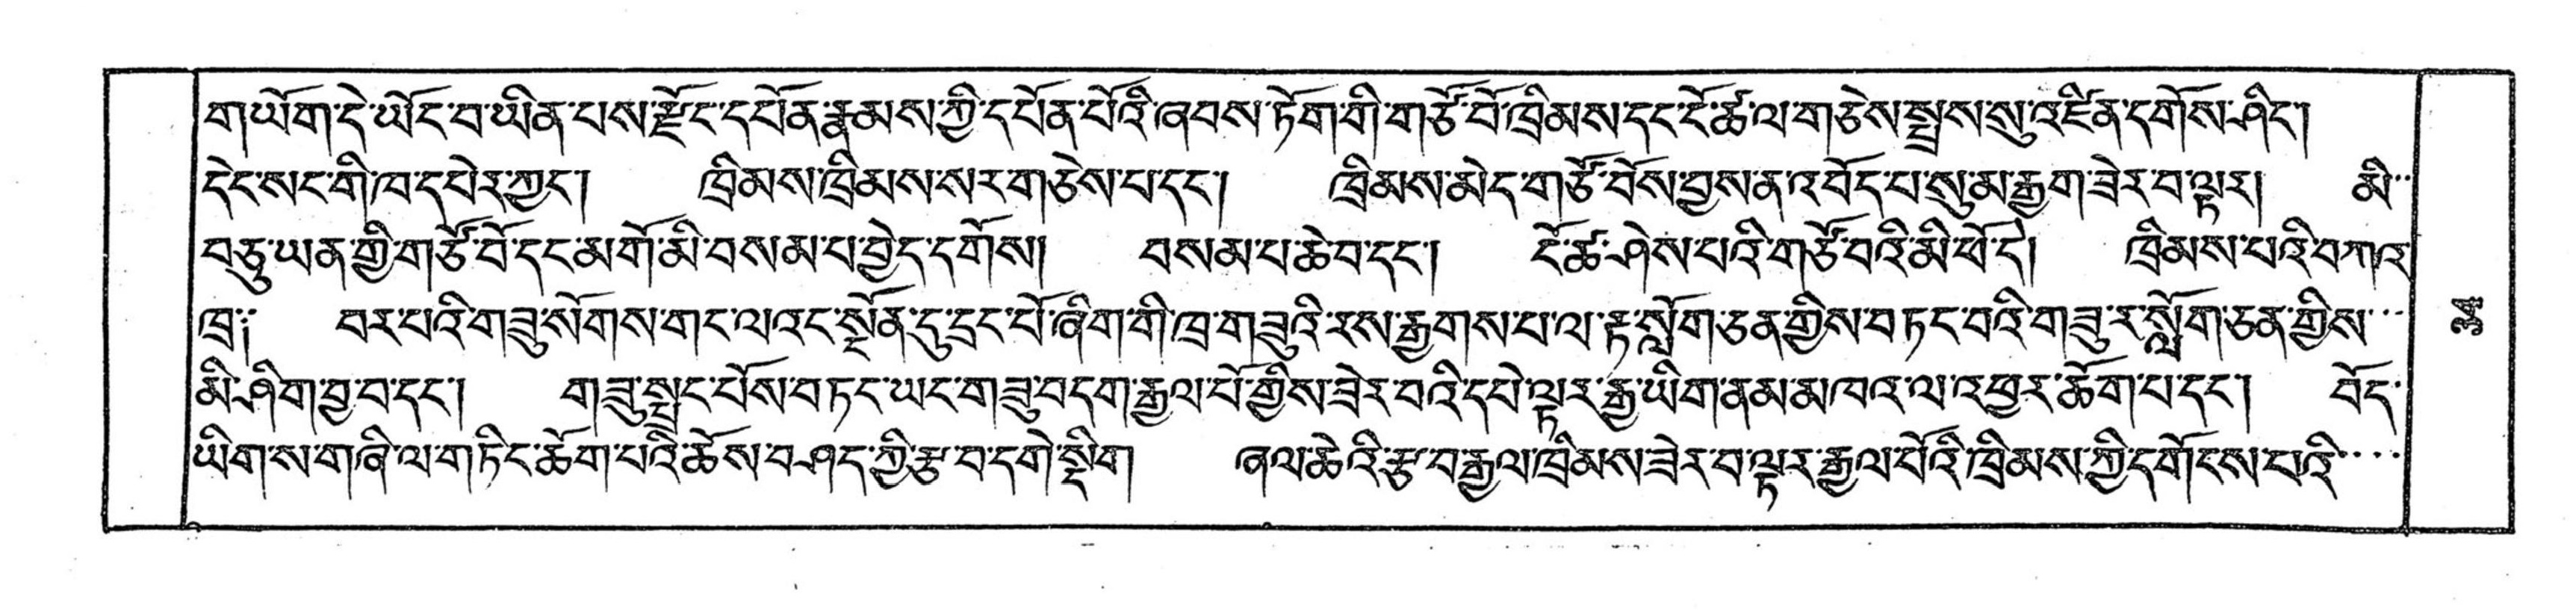 གཡོག་དེ་ཡོང་བ་ཡིན་པས་རྫོང་དཔོན་རྣམས་ཀྱི་དཔོན་པོའི་ཞབས་ཏོག་གི་གཙོ་བོ་ཁྲིམས་དང་ངོ་ཚ་ལ་གཅེས་སྤྲས་སུ་འཛིན་དགོས་ཤིང་།
དེང་སང་གི་ཁ་དཔེར་ཀྱང་། ཁྲིམས་ཁྲིམས་སར་གཅེས་པ་དང་། ཁྲིམས་མེད་གཙོ་བོས་བྱས་ན་འབོད་པ་སུམ་རྒྱག་ཟེར་བ་ལྟར། མི་
བཅུ་ཡན་གྱི་གཙོ་བོ་དང་མགོ་མི་བསམ་པ་བྱེད་དགོས། བསམ་པ་ཆེབ་དང་། ངོ་ཚ་ཤེས་པའི་གཙོ་བའི་མི་ཕོ་དེ། ཁྲིམས་པའི་བཀའ་
ཁྲ༔ བར་པའི་གཟུ་སོགས་གང་ལའང་སྔོན་དུ་དྲང་པོ་ཞིག་གི་ཁྲ་གཟུའི་རས་རྒྱགས་པ་ལ་རྟ་སློག་ཅན་གྱིས་བཏང་བའི་གཟུ་ར་སློག་ཅན་གྱིས་
མི་ཤིག་བྱ་བ་དང་། གཟུ་སྤྲང་པོས་བཏང་ཡང་གཟུ་བདག་རྒྱལ་པོ་གྱིས་ཟེར་བའི་དཔེ་ལྟར་རྒྱ་ཡིག་ནམ་མཁའ་ལ་འཕྱར་ཆོག་པ་དང་། བོད་
ཡིག་ས་གཞི་ལ་གཏིང་ཆོག་པའི་ཆོས་བཤད་ཀྱི་རྩ་བ་དགེ་སྡིག ཞལ་ཆེའི་རྩ་བ་རྒྱལ་ཁྲིམས་ཟེར་བ་ལྟར་རྒྱལ་པོའི་ཁྲིམས་ཀྱི་དགོངས་པའི་